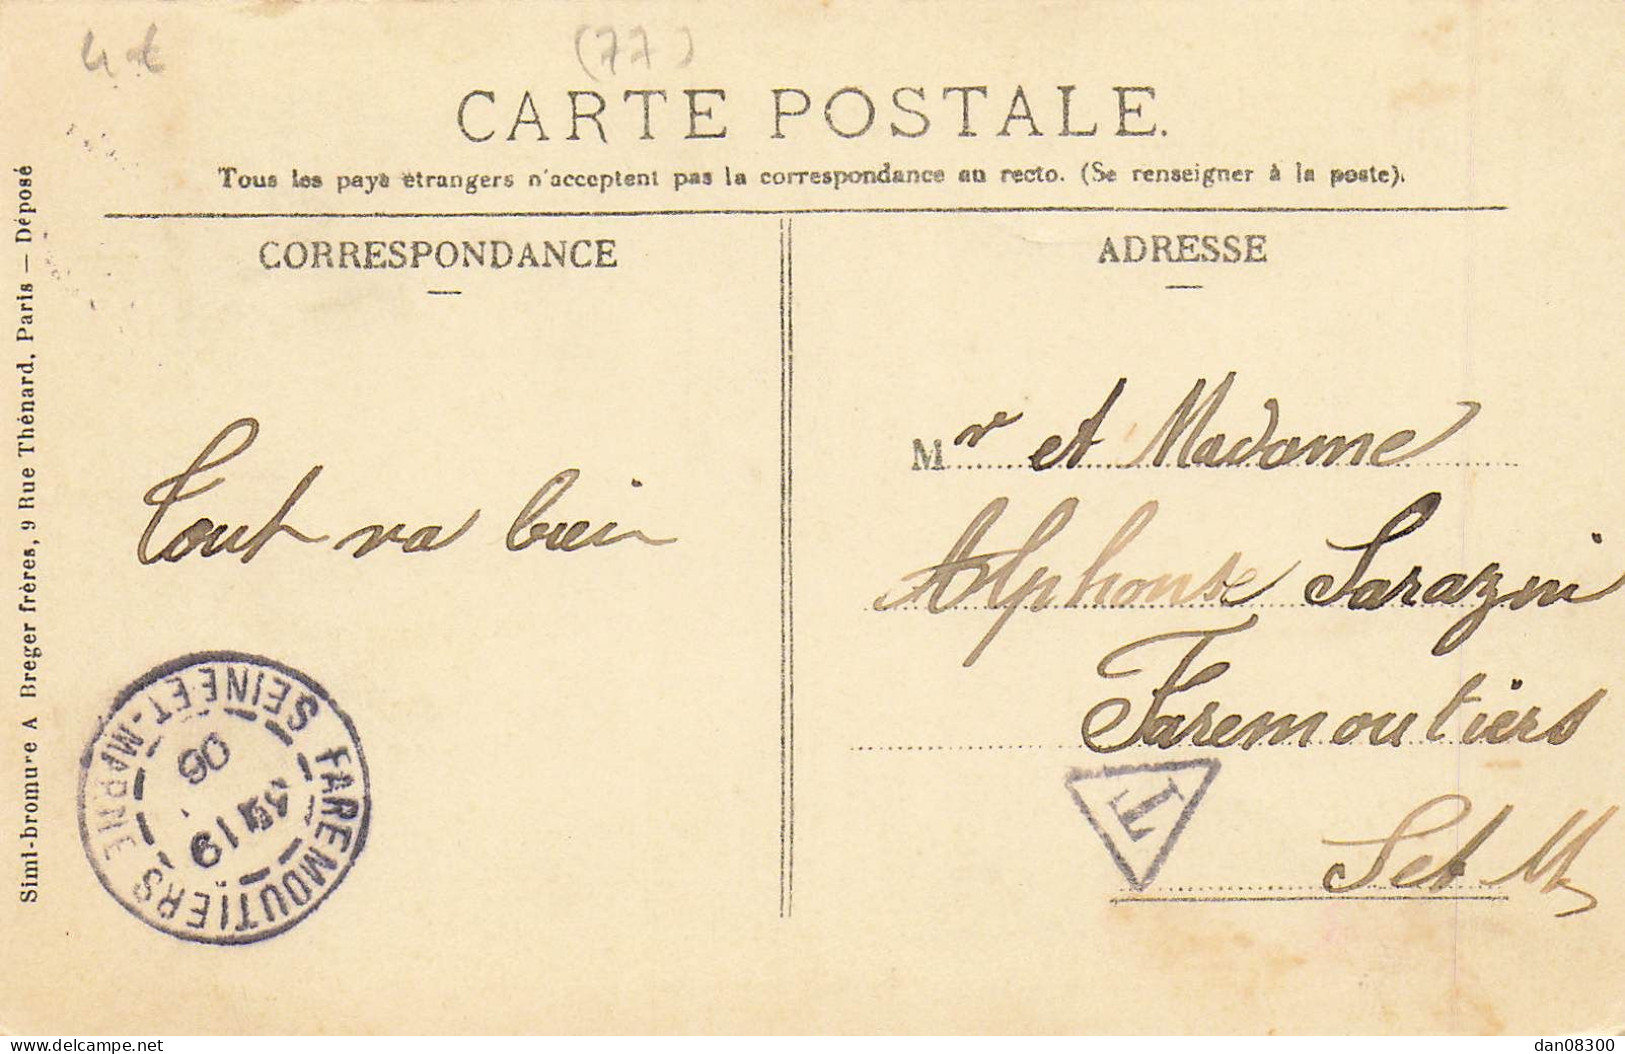 4 €
(77)
CARTE POSTALE.
Tous les pays étrangers n'acceptent pas la correspondance au recto. (Se renseigner à la poste).
CORRESPONDANCE
ADRESSE
Simi-bromure A Breger frères, 9 Rue Thénard, Paris — Déposé
Tout va bien
Mr et Madame
Alphonse Sarazin
Faremoutiers
S et M
T
FAREMOUTIERS
SEINE-ET-MARNE
19
06
delcampe.net
dan08300